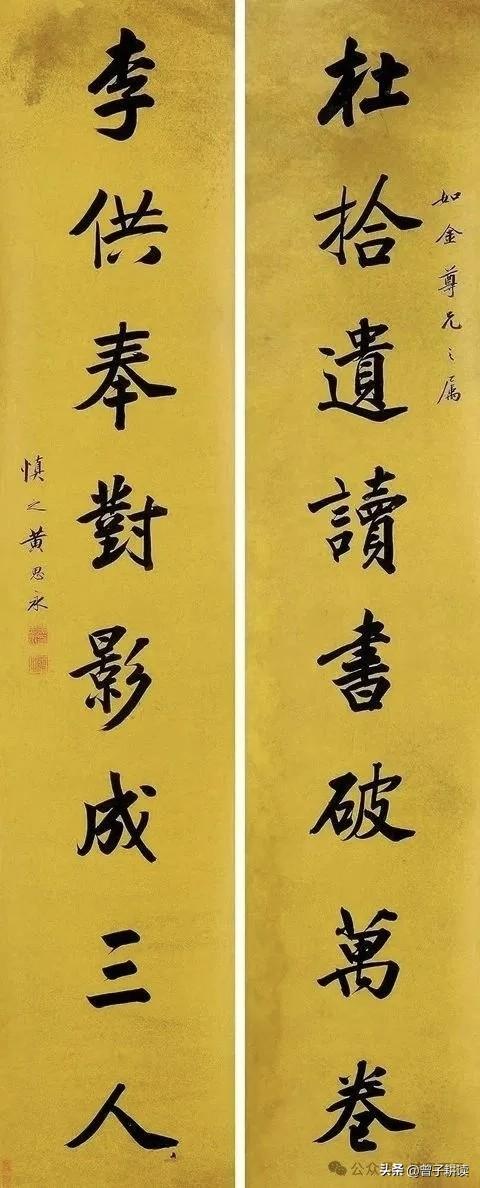 如金尊兄之属
杜拾遺讀書破萬卷
李供奉對影成三人
慎之黄思永
公众
头条 @曾子耕读